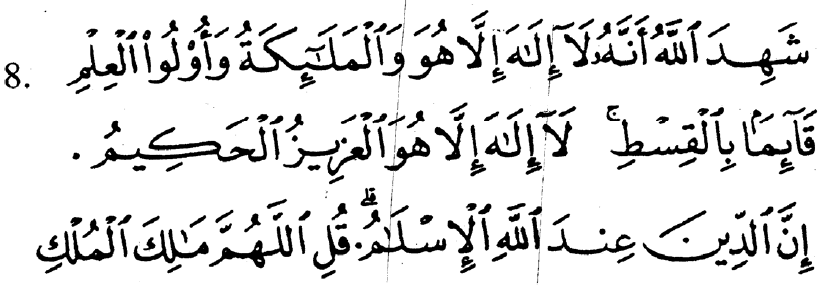 8. شَهِدَ ٱللَّهُ أَنَّهُۥ لَآ إِلَٰهَ إِلَّا هُوَ وَٱلْمَلَٰٓئِكَةُ وَأُو۟لُوا۟ ٱلْعِلْمِ
قَآئِمًۢا بِٱلْقِسْطِ ۚ لَآ إِلَٰهَ إِلَّا هُوَ ٱلْعَزِيزُ ٱلْحَكِيمُ .
إِنَّ ٱلدِّينَ عِندَ ٱللَّهِ ٱلْإِسْلَٰمُ ۗ. قُلِ ٱللَّهُمَّ مَٰلِكَ ٱلْمُلْكِ